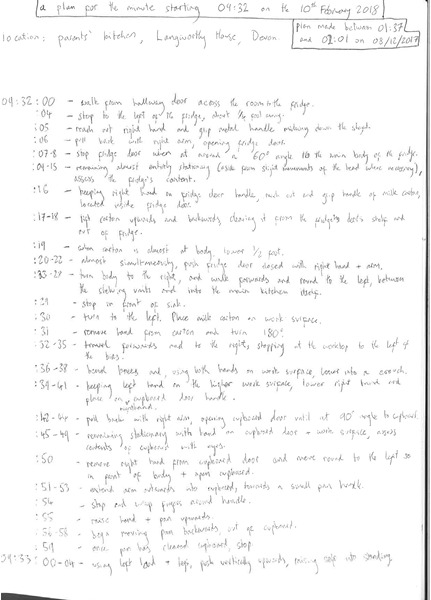 a plan for the minute starting 09:32 on the 10th February 2018
location: parents' kitchen, Langworthy House, Devon
plan made between 01:37
and 02:01 on 03/12/2017
09:32:00 - walk from hallway door across the room to the fridge.
:04 - stop to the left of the fridge, about 1/2 foot away.
:05 - reach out right hand and grip metal handle midway down the
:06 - pull back with right arm, opening fridge door.
:07-8 - stop fridge door when at around a 60° angle to the main body of the fridge.
:09-15 - remaining almost entirely stationary (aside from slight movements of the head where necessary),
assess the fridge's content.
:16 - keeping right hand on fridge door handle, reach out and grip handle of milk carton,
located inside fridge door.
:17-18 - lift carton upwards and backwards, clearing it from the fridge's door's shelf and
out of fridge.
:19 - when carton is almost at body, lower 1/2 foot.
:20-22 - almost simultaneously, push fridge door closed with right hand + arm,
turn body to the right, and walk forwards and round to the left, between
the shelving units and into the main kitchen itself.
:29 - stop in front of sink.
:30 - turn to the left. Place milk carton on work surface.
:31 - remove hand from carton and turn 180°.
:32-35 - travel forwards and to the right, stopping at the worktop to the left of
the
:36-38 - bend knees and, using both hands on work surface, lower into a crouch.
:39-41 - keeping left hand on the higher work surface, lower right hand and
place on cupboard door handle.
:42-44 - pull back with right arm, opening cupboard door until at 90° angle to cupboard.
:45-49 - remaining stationary with hand on cupboard door + work surface, assess
contents of cupboard with eyes.
:50 - remove right hand from cupboard door and move round to the left so
in front of body + open cupboard.
:51-53 - extend arm outwards into cupboard, towards a small pan handle.
:54 - stop and wrap fingers around handle.
:55 - raise hand + pan upwards.
:56-58 - begin moving pan backwards, out of cupboard.
:59 - once pan has cleared cupboard, stop.
09:33:00-04 - using left hand + legs, push vertically upwards, raising self into standing.